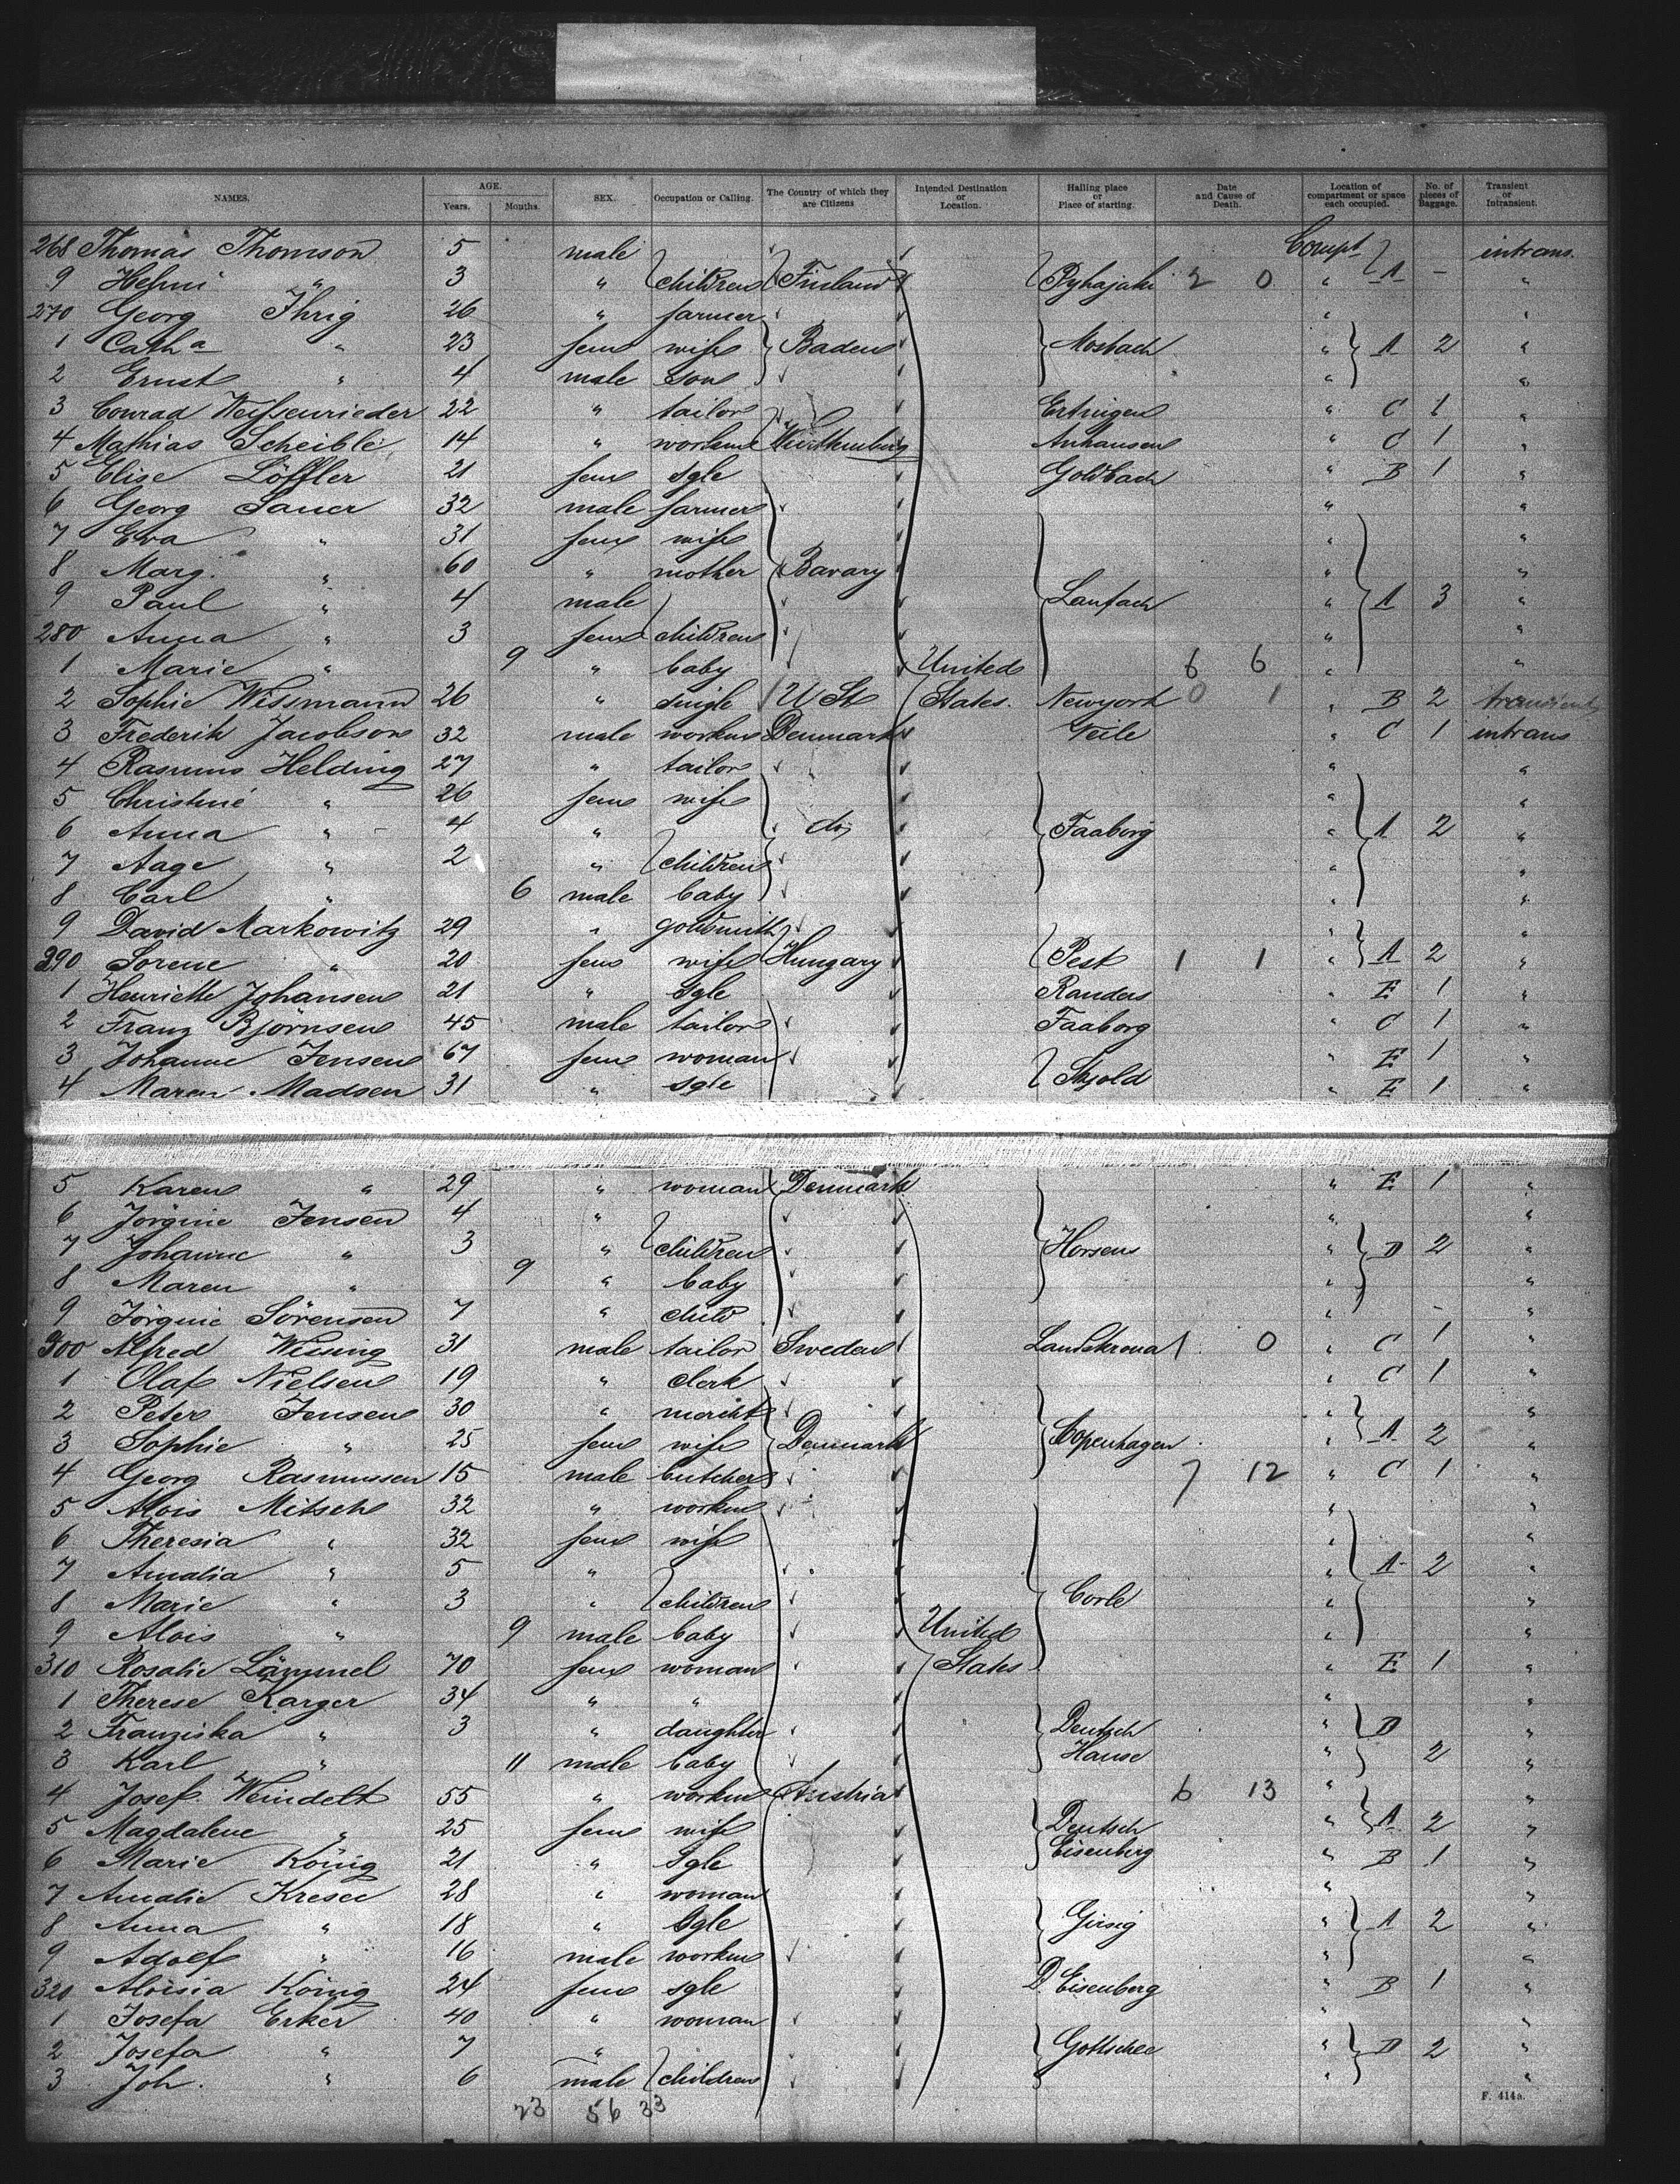 NAMES. AGE. Years. Months. SEX. Occupation or Calling. The Country of which they are Citizens Intended Destination or Location. Hailing place or Place of starting. Date and Cause of Death. Location of compartment or space each occupied. No. of pieces of Baggage. Transient or Intransient.
268 Thomas Thomson 5 male Compt intrans.
9 Helmi " 3 " children Finland Pyhajaki 2 0 " A - "
270 Georg Ihrig 26 " farmer " "
1 Catha " 23 fem wife Baden Mosbach " A 2 "
2 Ernst " 4 male son " "
3 Conrad Weissenrieder 22 " tailor Ertingen " C 1 "
4 Mathias Scheible 14 " workm Wurttemberg Anhausen " C 1 "
5 Elise Löffler 21 fem sgle Goldbach " B 1 "
6 Georg Sauer 32 male farmer " "
7 Eva " 31 fem wife " "
8 Marg. " 60 " mother Bavary " "
9 Paul " 4 male Laufach " A 3 "
280 Anna " 3 fem children " "
1 Marie " 9 " baby United 6 6 " "
2 Sophie Wissmann 26 " single U St States. Newyork 0 1 " B 2 transient
3 Frederik Jacobson 32 male workm Denmark Veile " C 1 intrans
4 Rasmus Helding 27 " tailor " "
5 Christine " 26 fem wife " "
6 Anna " 4 " do Faaborg " A 2 "
7 Aage " 2 " children " "
8 Carl " 6 male baby " "
9 David Markowitz 29 " goldsmith " "
290 Sorene " 20 fem wife Hungary Pest 1 1 " A 2 "
1 Henriette Johansen 21 " sgle Randers " E 1 "
2 Franz Björnsen 45 male tailor Faaborg " C 1 "
3 Johanne Jensen 67 fem woman " E 1 "
4 Maren Madsen 31 " sgle Skjold " E 1 "
5 Karen " 29 " woman Denmark " E 1 "
6 Jörgine Jensen 4 " " "
7 Johanne " 3 " children Horsens " D 2 "
8 Maren " 9 " baby " "
9 Jörgine Sörensen 7 " child " - "
300 Alfred Wissing 31 male tailor Sweden Landskrona 1 0 " C 1 "
1 Olaf Nielsen 19 " clerk " C 1 "
2 Peter Jensen 30 " mercht " "
3 Sophie " 25 fem wife Denmark Copenhagen " A 2 "
4 Georg Rasmussen 15 male butcher 7 12 " C 1 "
5 Alois Mitsch 32 " workm " "
6 Theresia " 32 fem wife " "
7 Amalia " 5 " " A 2 "
8 Marie " 3 " children " "
9 Alois " 9 male baby United " "
310 Rosalie Lämmel 70 fem woman States " E 1 "
1 Therese Karger 34 " " " "
2 Franziska " 3 " daughter Deutsch " D "
3 Karl " 11 male baby Hause " 2 "
4 Josef Weindelt 55 " workm Austria 6 13 " "
5 Magdalene " 25 fem wife Deutsch " A 2 "
6 Marie König 21 " sgle Eisenberg " B 1 "
7 Amalie 28 " woman " "
8 Anna " 18 " sgle Girsig " A 2 "
9 Adolf " 16 male workm " "
320 Aloisia König 24 fem sgle D. Eisenberg " B 1 "
1 Josefa Erker 40 " woman " "
2 Josefa " 7 " Gottschee " D 2 "
3 Joh. " 6 male children " "
23 56 33
F. 414a.